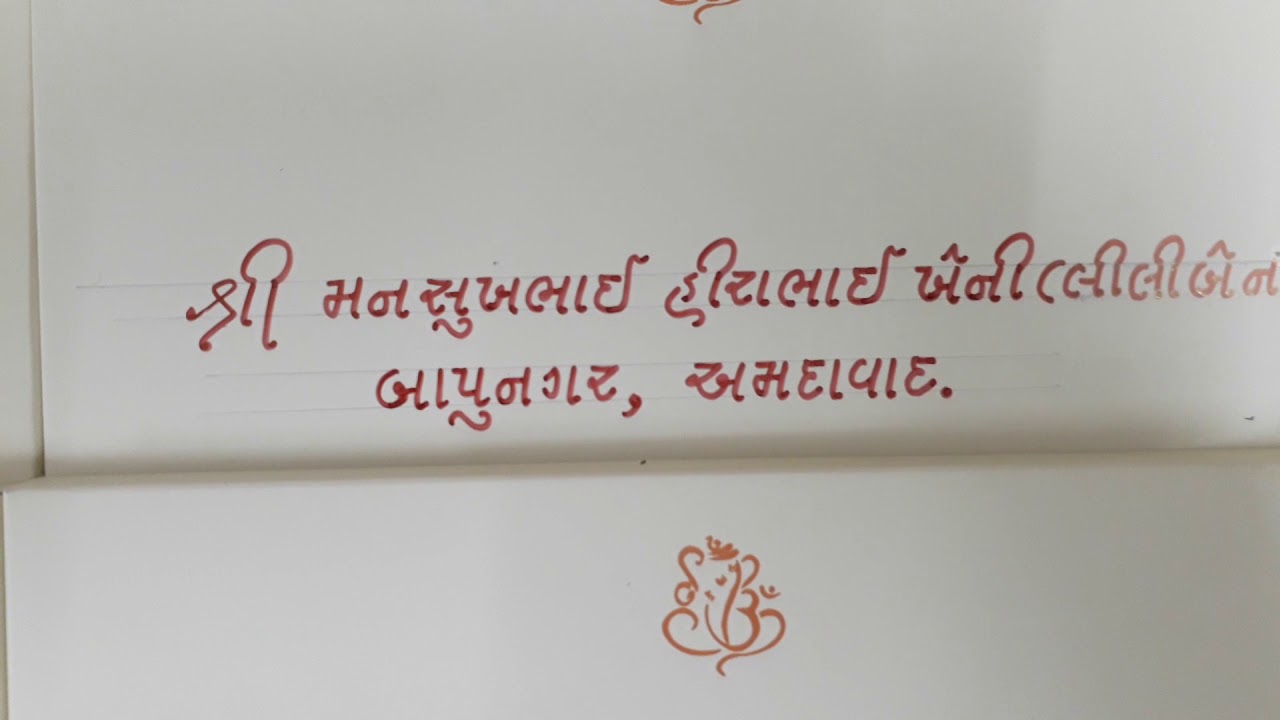 શ્રી મનસુખભાઈ હીરાભાઈ ખેંની (લીલીબેન
બાપુનગર, અમદાવાદ.